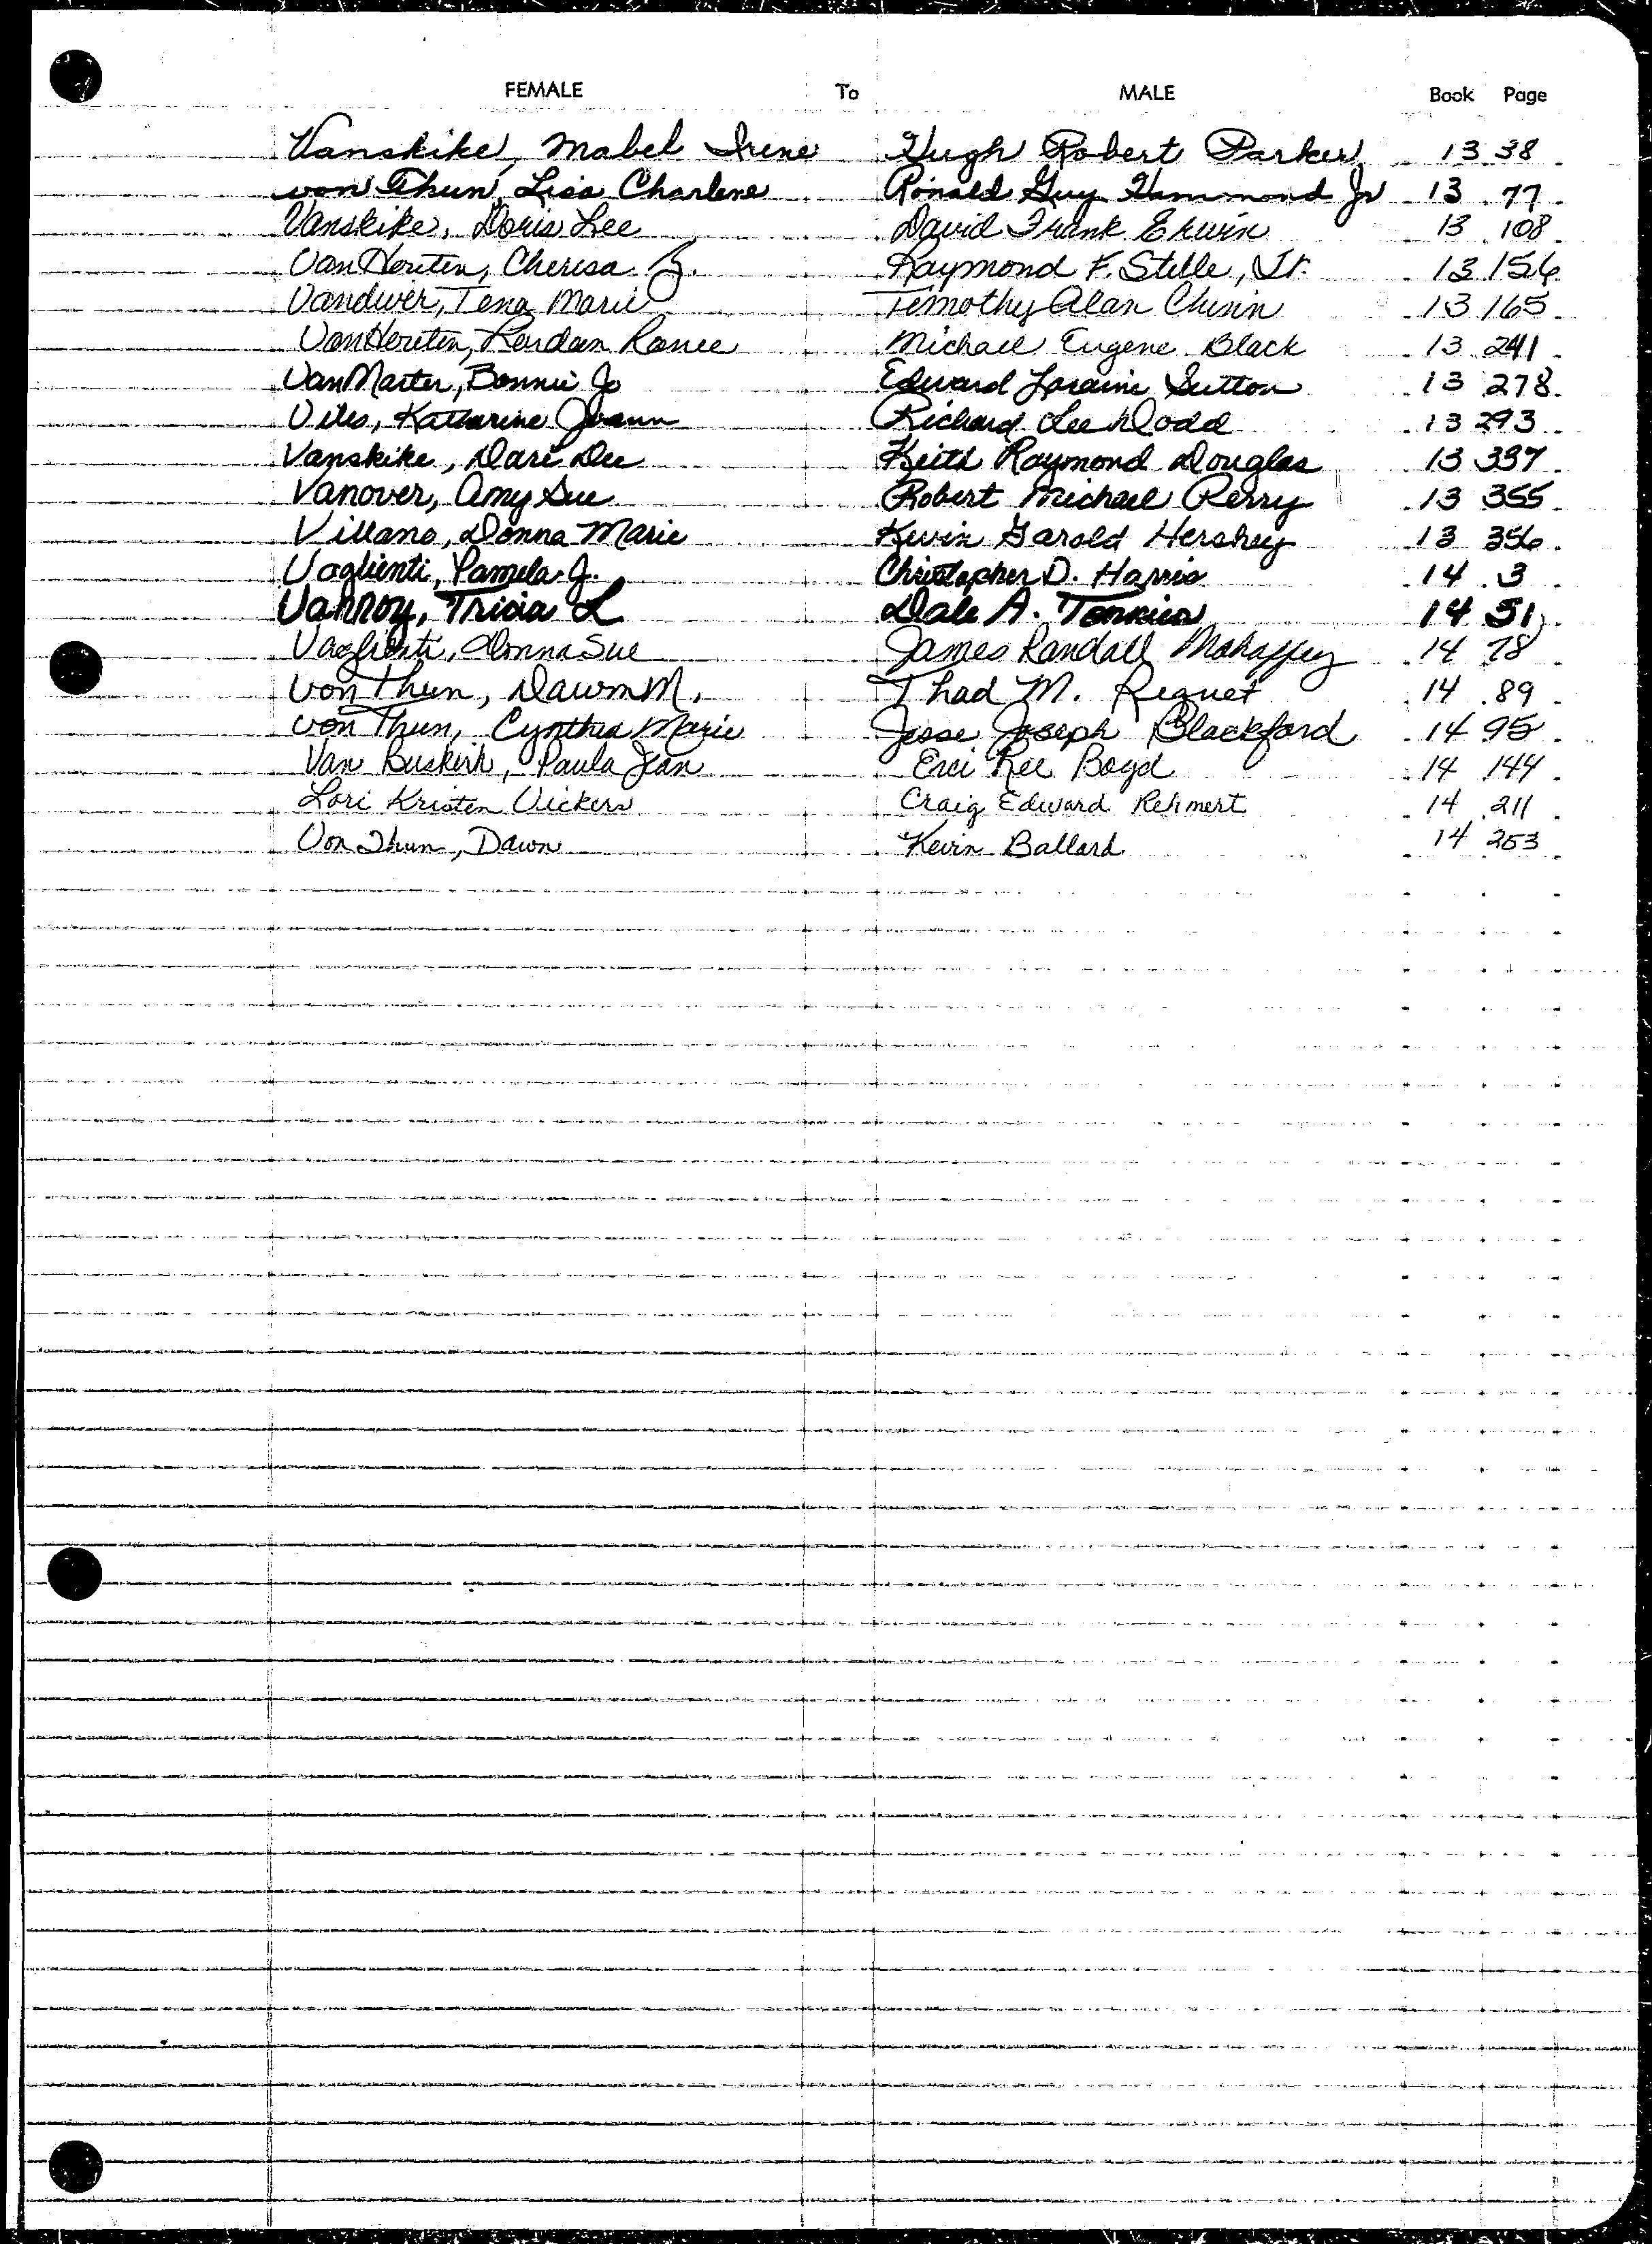 FEMALE To MALE Book Page
Vanskike, Mabel Irene Hugh Robert Parker 13 38
von Thun, Lisa Charlene Ronald Guy Hammond Jr 13 77
Vanskike, Doris Lee David Frank Erwin 13 108
VanHouten, Cheresa B. Raymond F. Stelle, Jr. 13 156
Vandiver, Tena Marie Timothy Alan Chisin 13 165
VanHouten, Ranee Michael Eugene Black 13 241
VanMarter, Bonnie Jo Edward Loraine Sutton 13 278
Viles, Katharine Joann Richard Lee Dodd 13 293
Vanskike, Dare Dee Keith Raymond Douglas 13 337
Vanover, Amy Sue Robert Michael Perry 13 355
Villano, Donna Marie Kevin Garold Hershey 13 356
Vaglienti, Pamela J. Christopher D. Harris 14 3
Vannoy, Tricia L Dale A. 14 51
Vaglienti, Donna Sue James Randall Mahaffey 14 78
von Thun, Dawn M. Thad M. Requet 14 89
von Thun, Cynthia Marie Jesse Joseph Blackford 14 95
Van Buskirk, Paula Jean Eric Lee Boyd 14 144
Lori Kristen Vickers Craig Edward Rehmert 14 211
Von Thun, Dawn Kevin Ballard 14 253